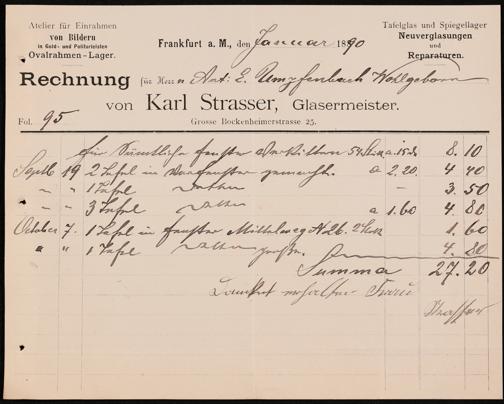 Atelier für Einrahmen
von Bildern
in Gold- und Politurleisten
Ovalrahmen-Lager.
Tafelglas und Spiegellager
Neuverglasungen
und
Reparaturen.
Frankfurt a. M., den Januar 1890
Rechnung für Herrn Ant: L. Umpfenbach Wohlgeborn
von Karl Strasser, Glasermeister.
Fol. 95 Grosse Bockenheimerstrasse 25.
für Sämtliche fenster Verkitten 54 a 15 8. 10
Septb 19 2 Tafel in Vorfenster gemacht. a 2.20 4 40
" " 1 Tafel — 3. 50
" " 3 Tafel a 1.60 4. 80
October 7. 1 Tafel in fenster Mittelweg N 26. 1. 60
" " 1 Tafel 4. 80
Summa 27. 20
Dankend erhalten
Strasser